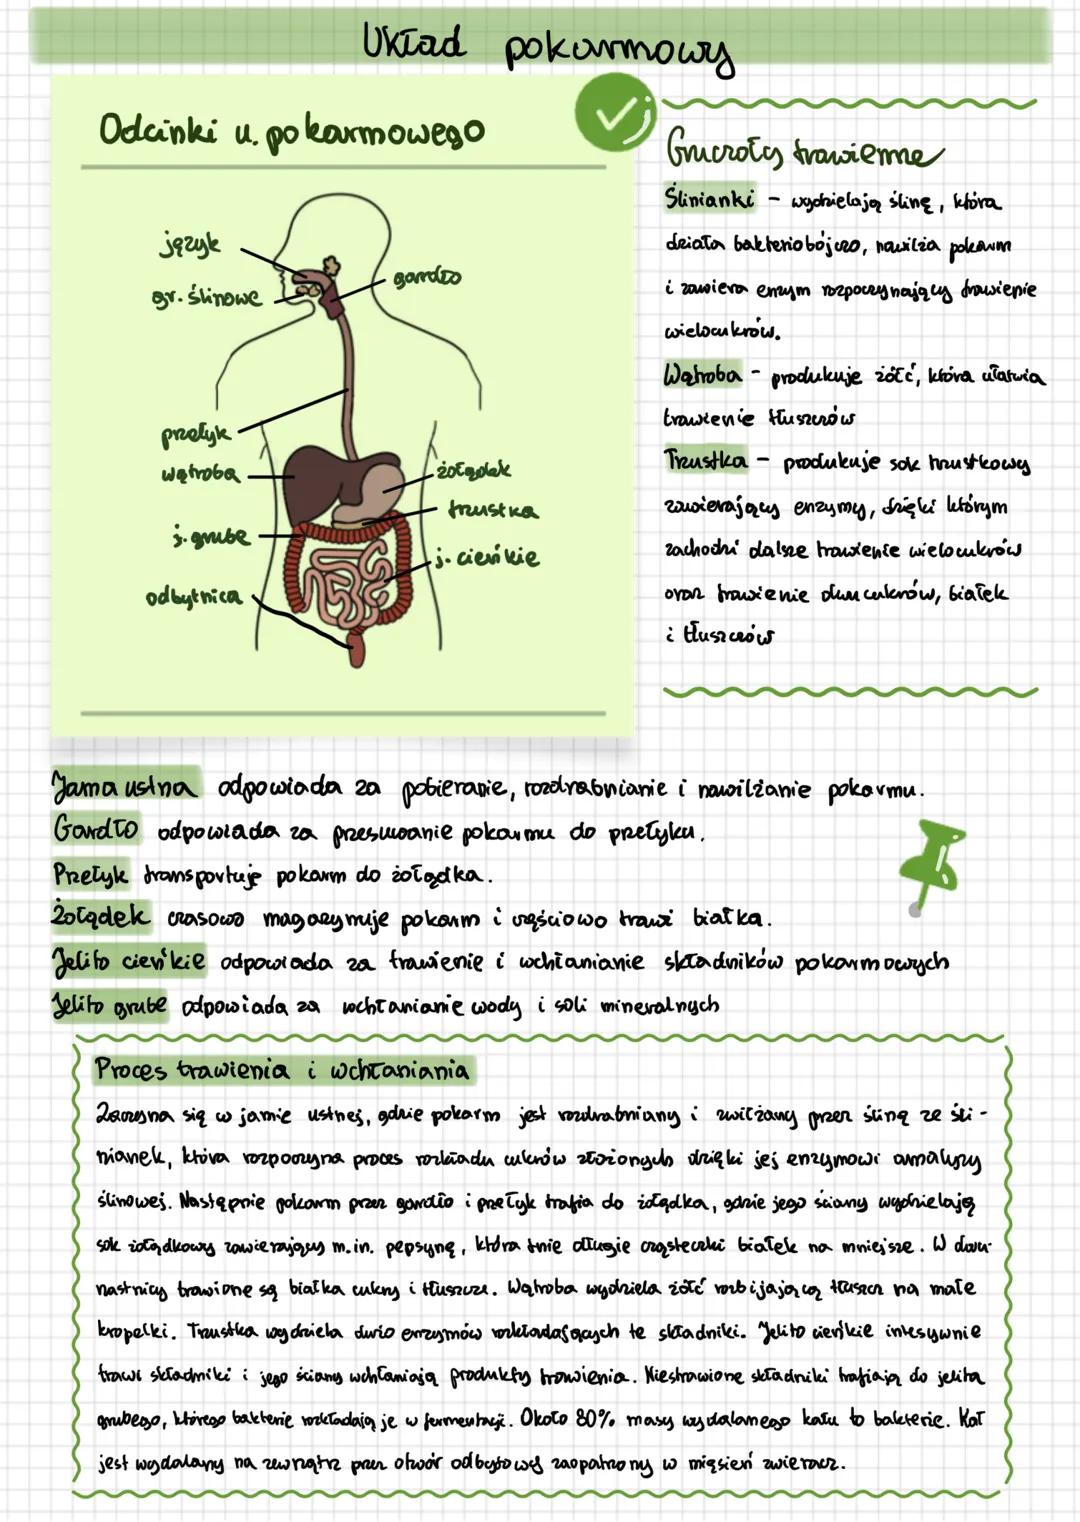 Układ pokarmowy
Odcinki u. pokarmowego
język
gr. ślinowe
gardło
przełyk
wątroba
żołądek
trzustka
j. grube
j. cieńkie
odbytnica
Gruczoły trawienne
Ślinianki - wydzielają ślinę, która
działa bakteriobójczo, nawilża pokarm
i zawiera enzym rozpoczynający trawienie
wielocukrów.
Wątroba - produkuje żółć, która ułatwia
trawienie tłuszczów
Trzustka - produkuje sok trzustkowy
zawierający enzymy, dzięki którym
zachodzi dalsze trawienie wielocukrów
oraz trawienie dwucukrów, białek
i tłuszczów
Jama ustna odpowiada za pobieranie, rozdrabnianie i nawilżanie pokarmu.
Gardło odpowiada za przesuwanie pokarmu do przełyku.
Przełyk transportuje pokarm do żołądka.
Żołądek czasowo magazynuje pokarm i częściowo trawi białka.
Jelito cieńkie odpowiada za trawienie i wchłanianie składników pokarmowych
Jelito grube odpowiada za wchłanianie wody i soli mineralnych
Proces trawienia i wchłaniania
Zaczyna się w jamie ustnej, gdzie pokarm jest rozdrabniany i zwilżany przez ślinę ze śli-
nianek, która rozpoczyna proces rozkładu cukrów złożonych dzięki jej enzymowi amalyzy
ślinowej. Następnie pokarm przez gardło i przełyk trafia do żołądka, gdzie jego ściany wydzielają
sok żołądkowy zawierający m.in. pepsynę, która tnie długie cząsteczki białek na mniejsze. W dwu-
nastnicy trawione są białka cukry i tłuszcze. Wątroba wydziela żółć rozbijającą tłuszcz na małe
kropelki. Trzustka wydziela dużo enzymów rozkładających te składniki. Jelito cieńkie intesywnie
trawi składniki i jego ściany wchłaniają produkty trawienia. Niestrawione składniki trafiają do jelita
grubego, którego bakterie rozkładają je w fermentacji. Około 80% masy wydalanego kału to bakterie. Kał
jest wydalany na zewnątrz przez otwór odbytowy zaopatrzony w mięsień zwieracz.